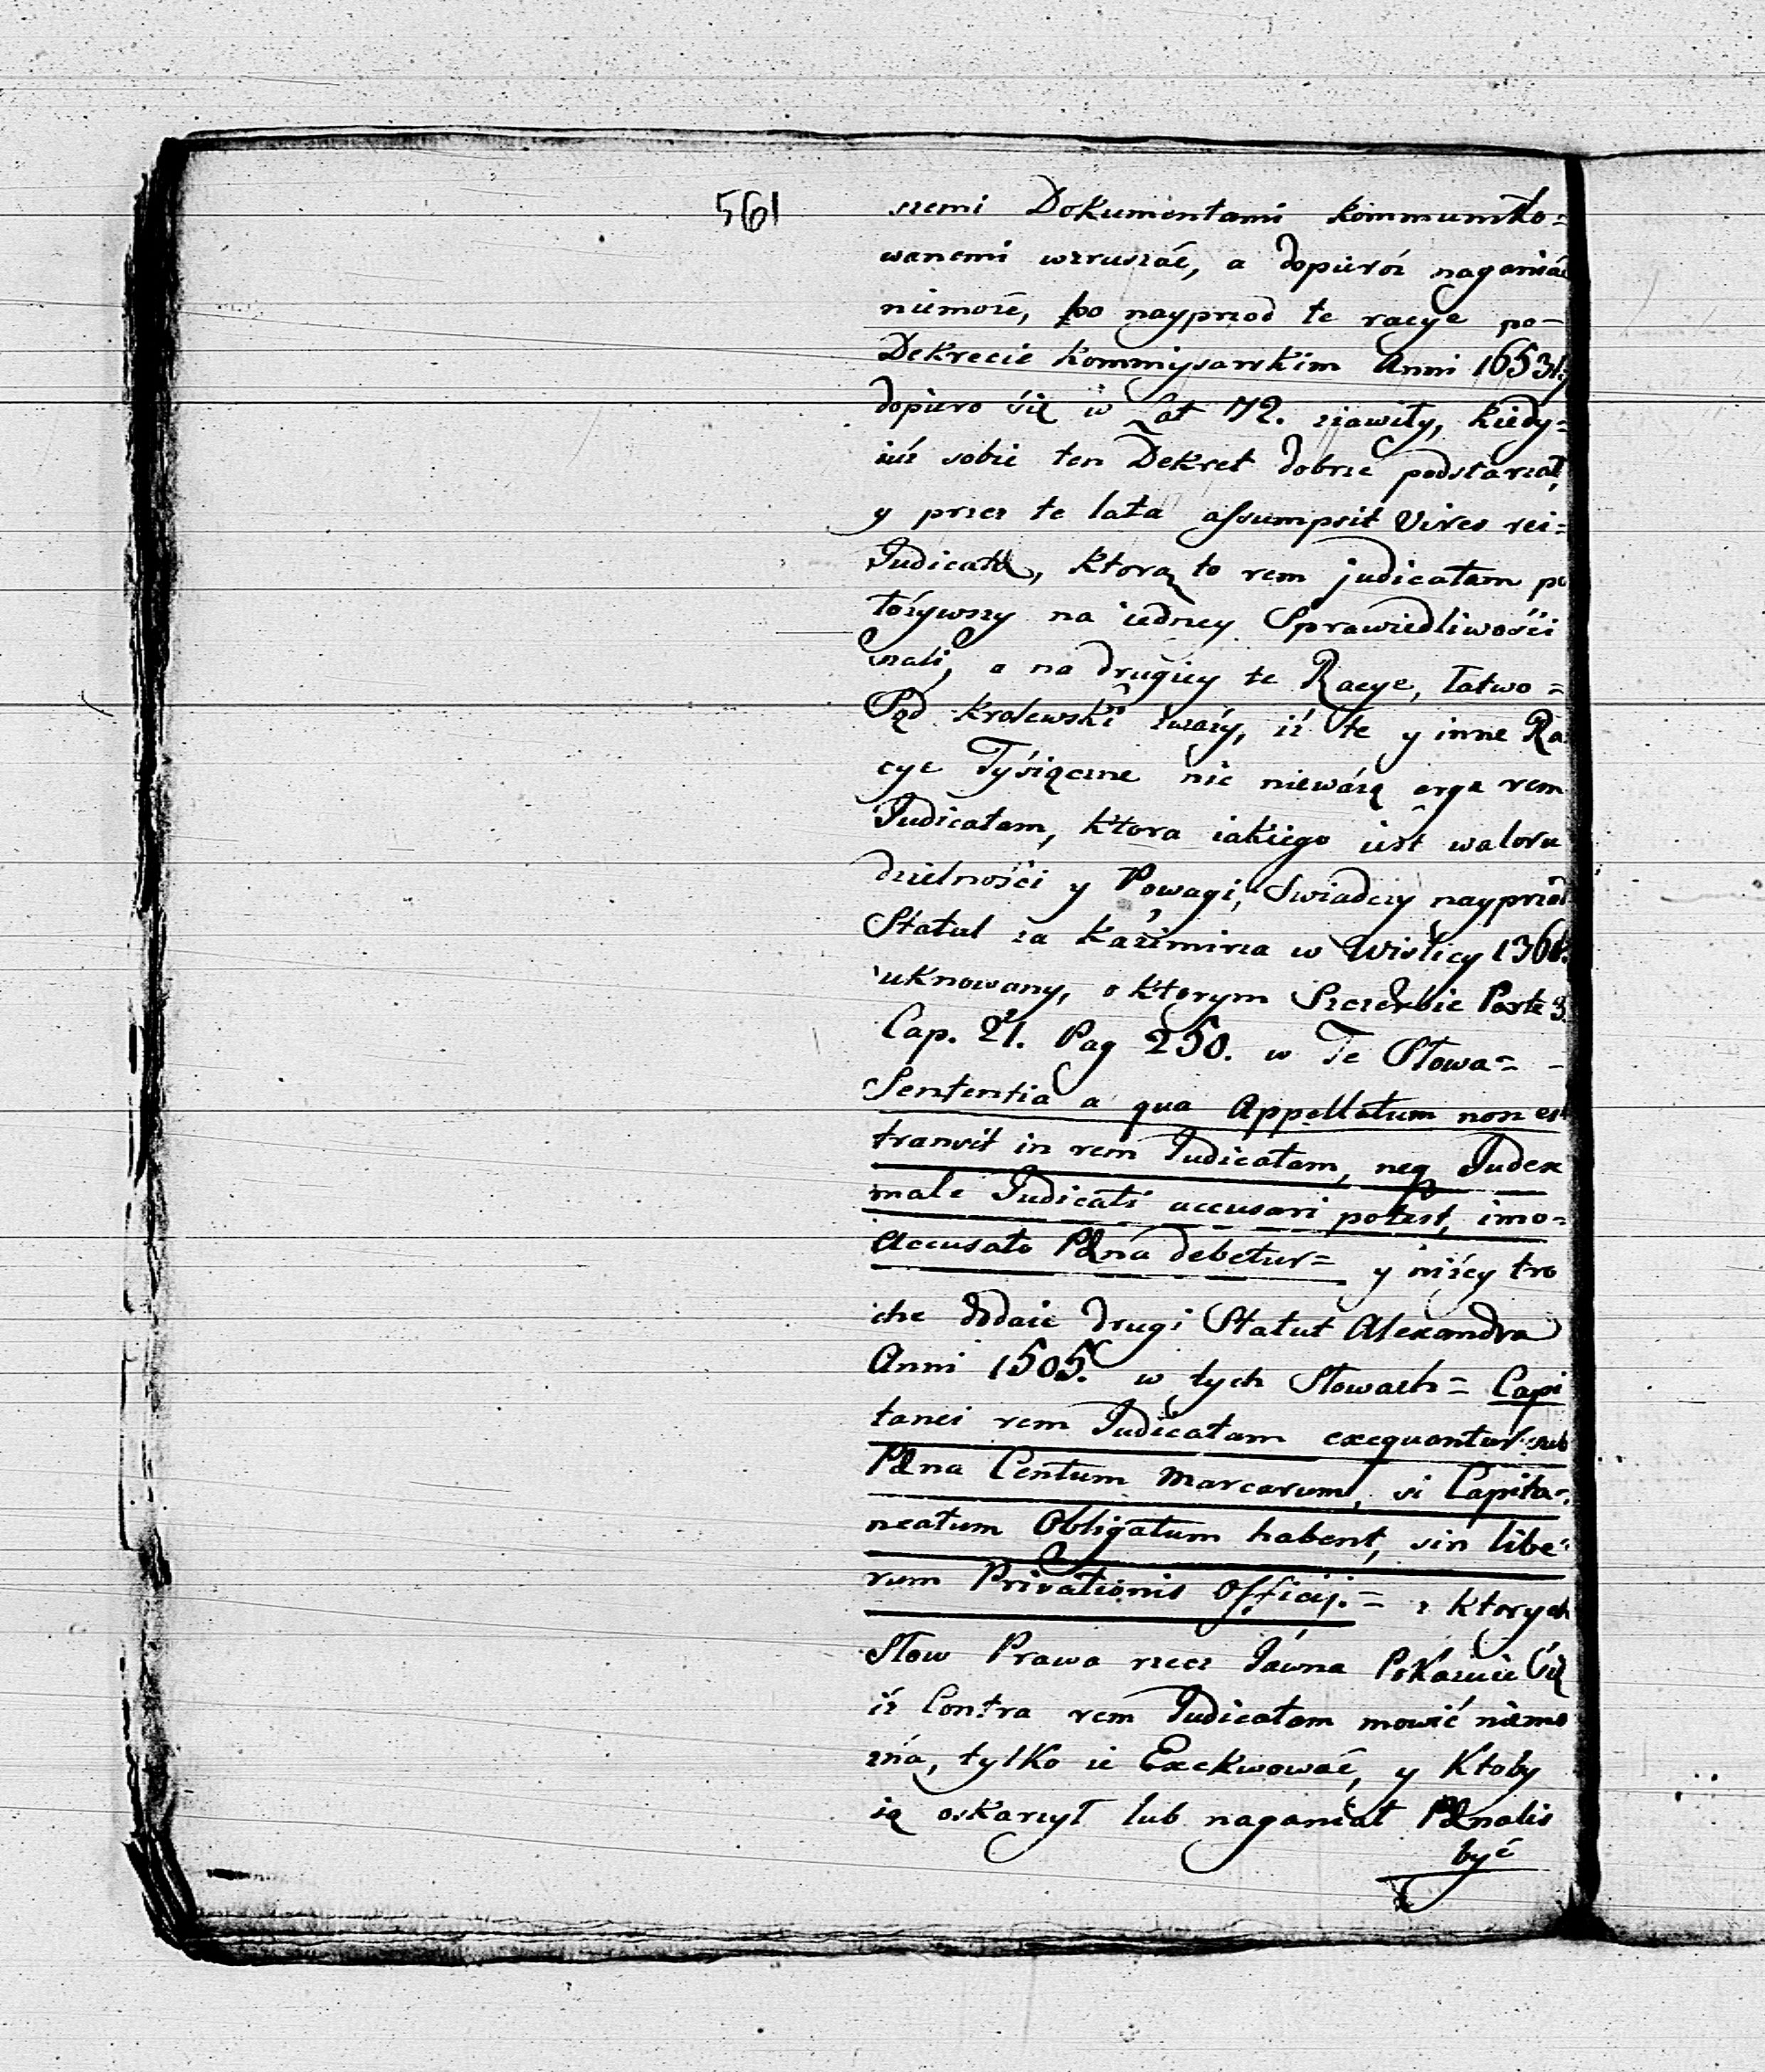 561
szemi Dokumentami kommuniko=
wanemi wzruszać, a dopieroż naganiać
niemoże, bo nayprzod te racye po-
Dekrecie Kommissarskim Anni 1653
dopiero się w Lat 72. ziawiły, kiedy=
iuż sobie ten Dekret dobrze podstarzał,
y przez te lata assumpsit Vires rei=
Judicatæ, ktorą to rem judicatam po
łożywszy na iedney Sprawiedliwości
szali, a na drugiey te Racye, łatwo=
Sąd Krolewski zważy, iż te y inne Ra
cye Tysiączne nic nieważą erga rem
Judicatam, ktora iakiego iest waloru
dzielności y Powagi, Swiadczy nayprzod
Statut za Kazimirza w Wislicy
uknowany, o ktorym Szczerbic Parte 3.
Cap. 21. Pag 250. w Te Słowa= -
Sententia a qua Appellatum non est
transit in rem Judicatam, neq Judex
male Judicati accusari potest, imo=
Accusato Pœna debetur= y niżey tro
che dodaie drugi Statut Alexandra
Anni 1505. w tych Słowach= Capi
tanei rem Judicatam exequantur sub
Pœna Centum Marcarum, si Capita=
neatum Obligatum habent, sin libe=
rum Privationis Officij.= z ktorych
Słow Prawa rzecz Jawna Pokazuie się
iż Contra rem Judicatam mowić niemo
żna, tylko ie Exekwować, y Ktoby
ią oskarzył lub naganiał Pœnalis
być